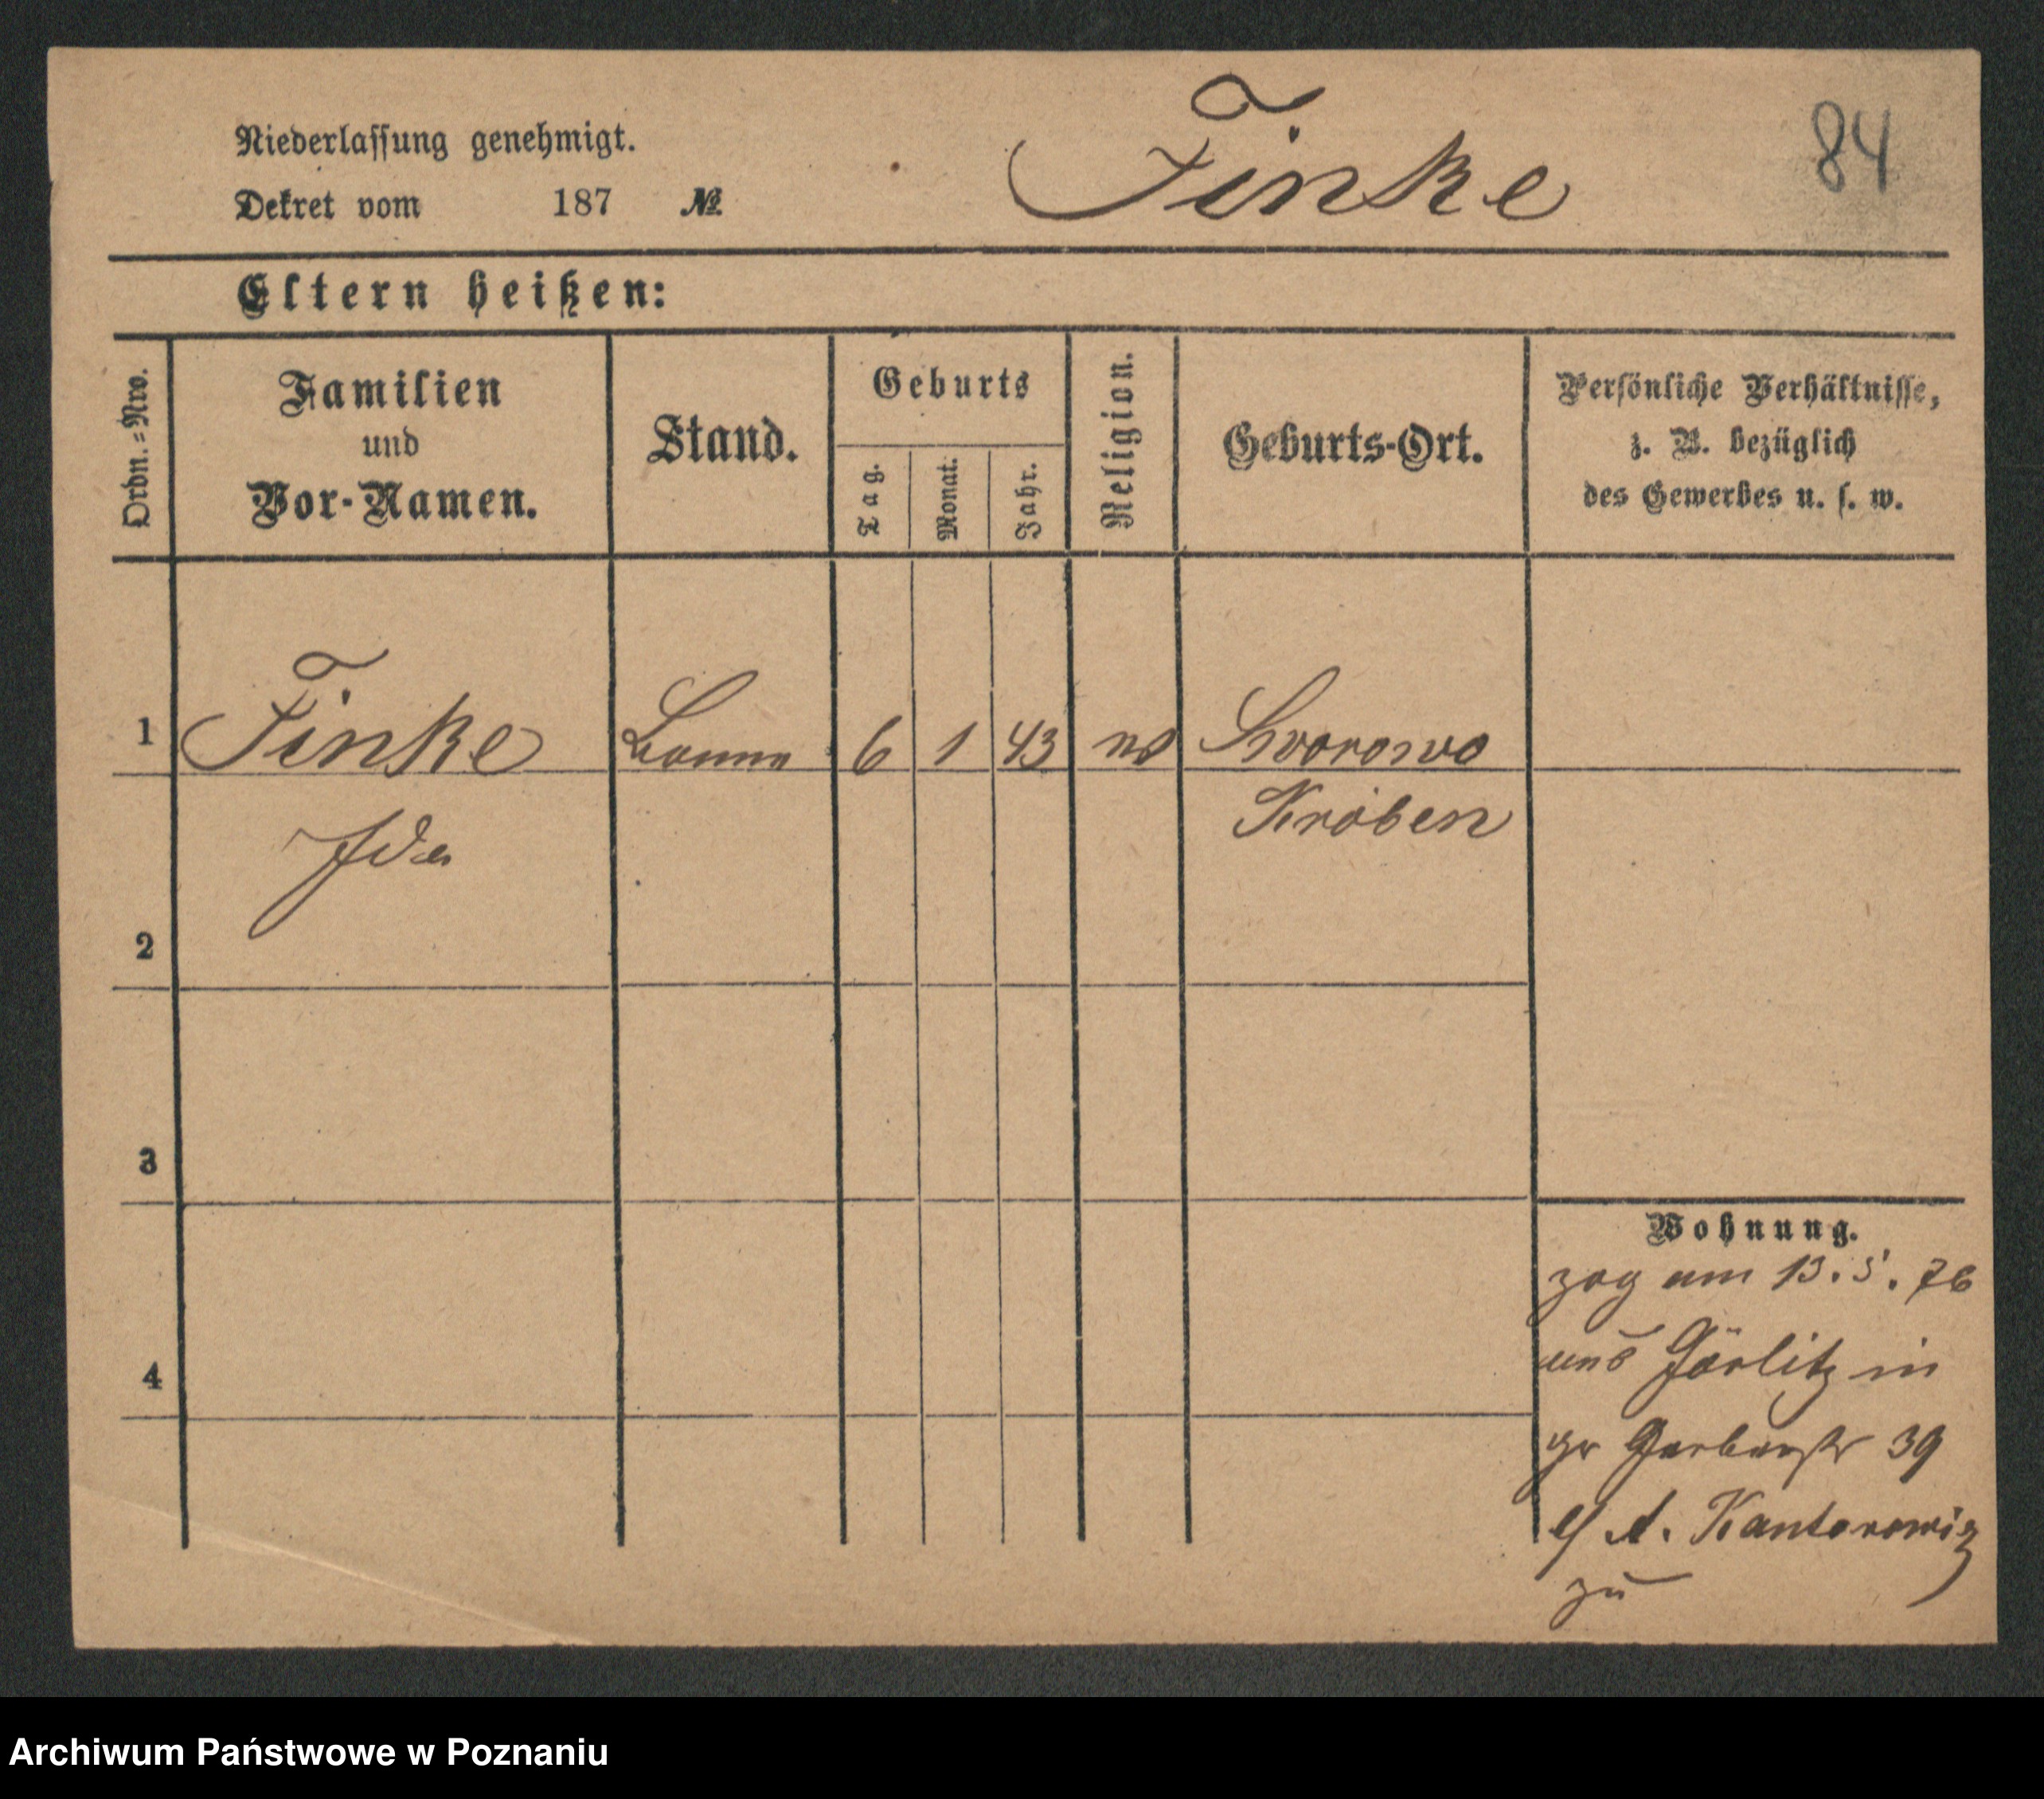 Niederlassung genehmigt.
Dekret vom 187 №
Finke
84
Eltern heißen:
Ordn.=Nro.
Familien
und
Vor-Namen.
Stand.
Geburts
Tag.
Monat.
Jahr.
Religion.
Geburts-Ort.
Persönliche Verhältnisse,
z. B. bezüglich
des Gewerbes u. s. w.
1 Finke 6 1 43
Kröben
Ida
2
3
4
Wohnung.
zog am 13. 5. 76
aus Görlitz in
gr Gerberstr 39
A. Kantorowiz
zu
Archiwum Państwowe w Poznaniu